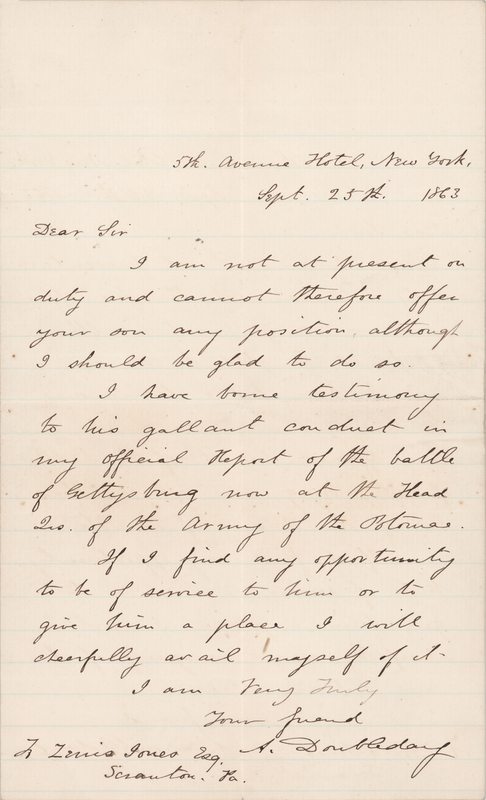 5th. Avenue Hotel, New York,
Sept. 25th. 1863
Dear Sir
I am not at present on
duty and cannot therefore offer
your son any position, although
I should be glad to do so.
I have borne testimony
to his gallant conduct in
my official Report of the battle
of Gettysburg now at the Head
Qrs. of the Army of the Potomac.
If I find any opportunity
to be of service to him or to
give him a place I will
cheerfully avail myself of it.
I am Very Truly
Your friend
A. Doubleday
Jones Esq.
Scranton. Pa.